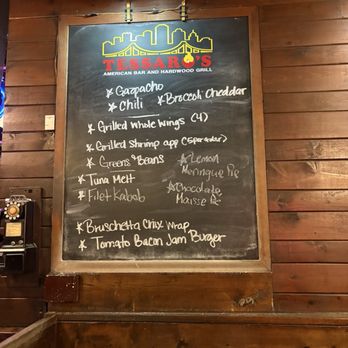 TESSARO'S
AMERICAN BAR AND HARDWOOD GRILL
Gazpacho
Chili
Broccoli Cheddar
Grilled Whole Wings (4)
Grilled Shrimp app (5 per order)
Greens & Beans
Lemon
Meringue Pie
Tuna Melt
Filet Kabob
Chocolate
Mousse Pie
Bruschetta Chix Wrap
Tomato Bacon Jam Burger